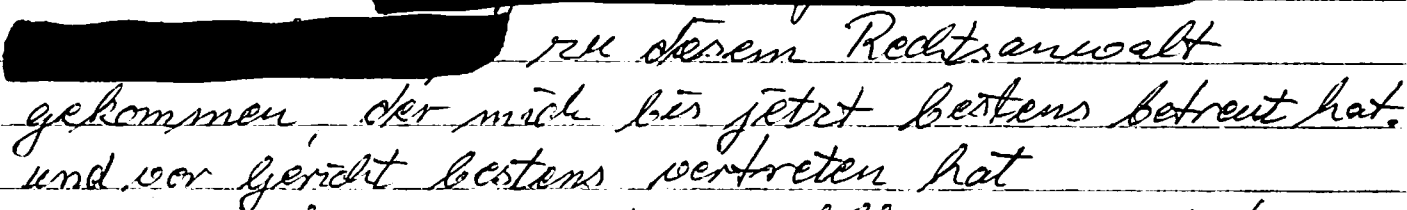 zu diesem Rechtsanwalt
gekommen, der mich bis jetzt bestens betreut hat.
und vor Gericht bestens vertreten hat